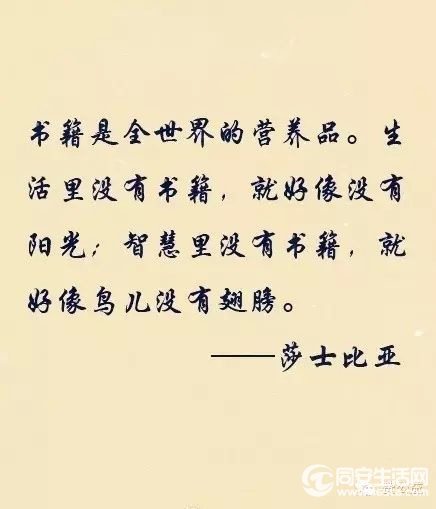 书籍是全世界的营养品。生
活里没有书籍，就好像没有
阳光；智慧里没有书籍，就
好像鸟儿没有翅膀。
——莎士比亚
同安生活网